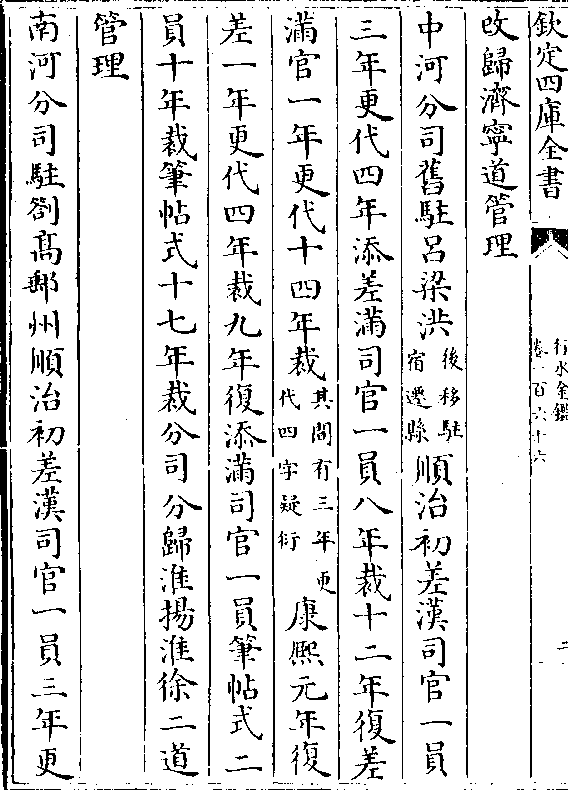 欽定四庫全書
行水金鑑
卷一百六十六
二
改歸濟寧道管理
中河分司舊駐呂梁洪後移駐宿遷縣順治初差漢司官一員
三年更代四年添差滿司官一員八年裁十二年復差
滿官一年更代十四年裁其間有三年更代四字疑衍康熙元年復
差一年更代四年裁九年復添滿司官一員筆帖式二
員十年裁筆帖式十七年裁分司分歸淮揚淮徐二道
管理
南河分司駐劄高郵州順治初差漢司官一員三年更